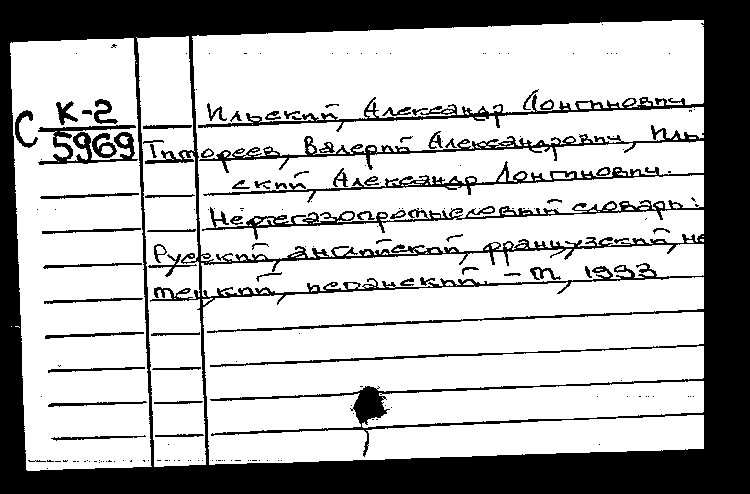 С К-2
5969
Ильский, Александр Лонгинович
Тимофеев, Валерий Александрович, Иль-
ский, Александр Лонгинович.
Нефтегазопромысловый словарь:
Русский, английский, французский, не
мецкий, испанский. - М, 1993